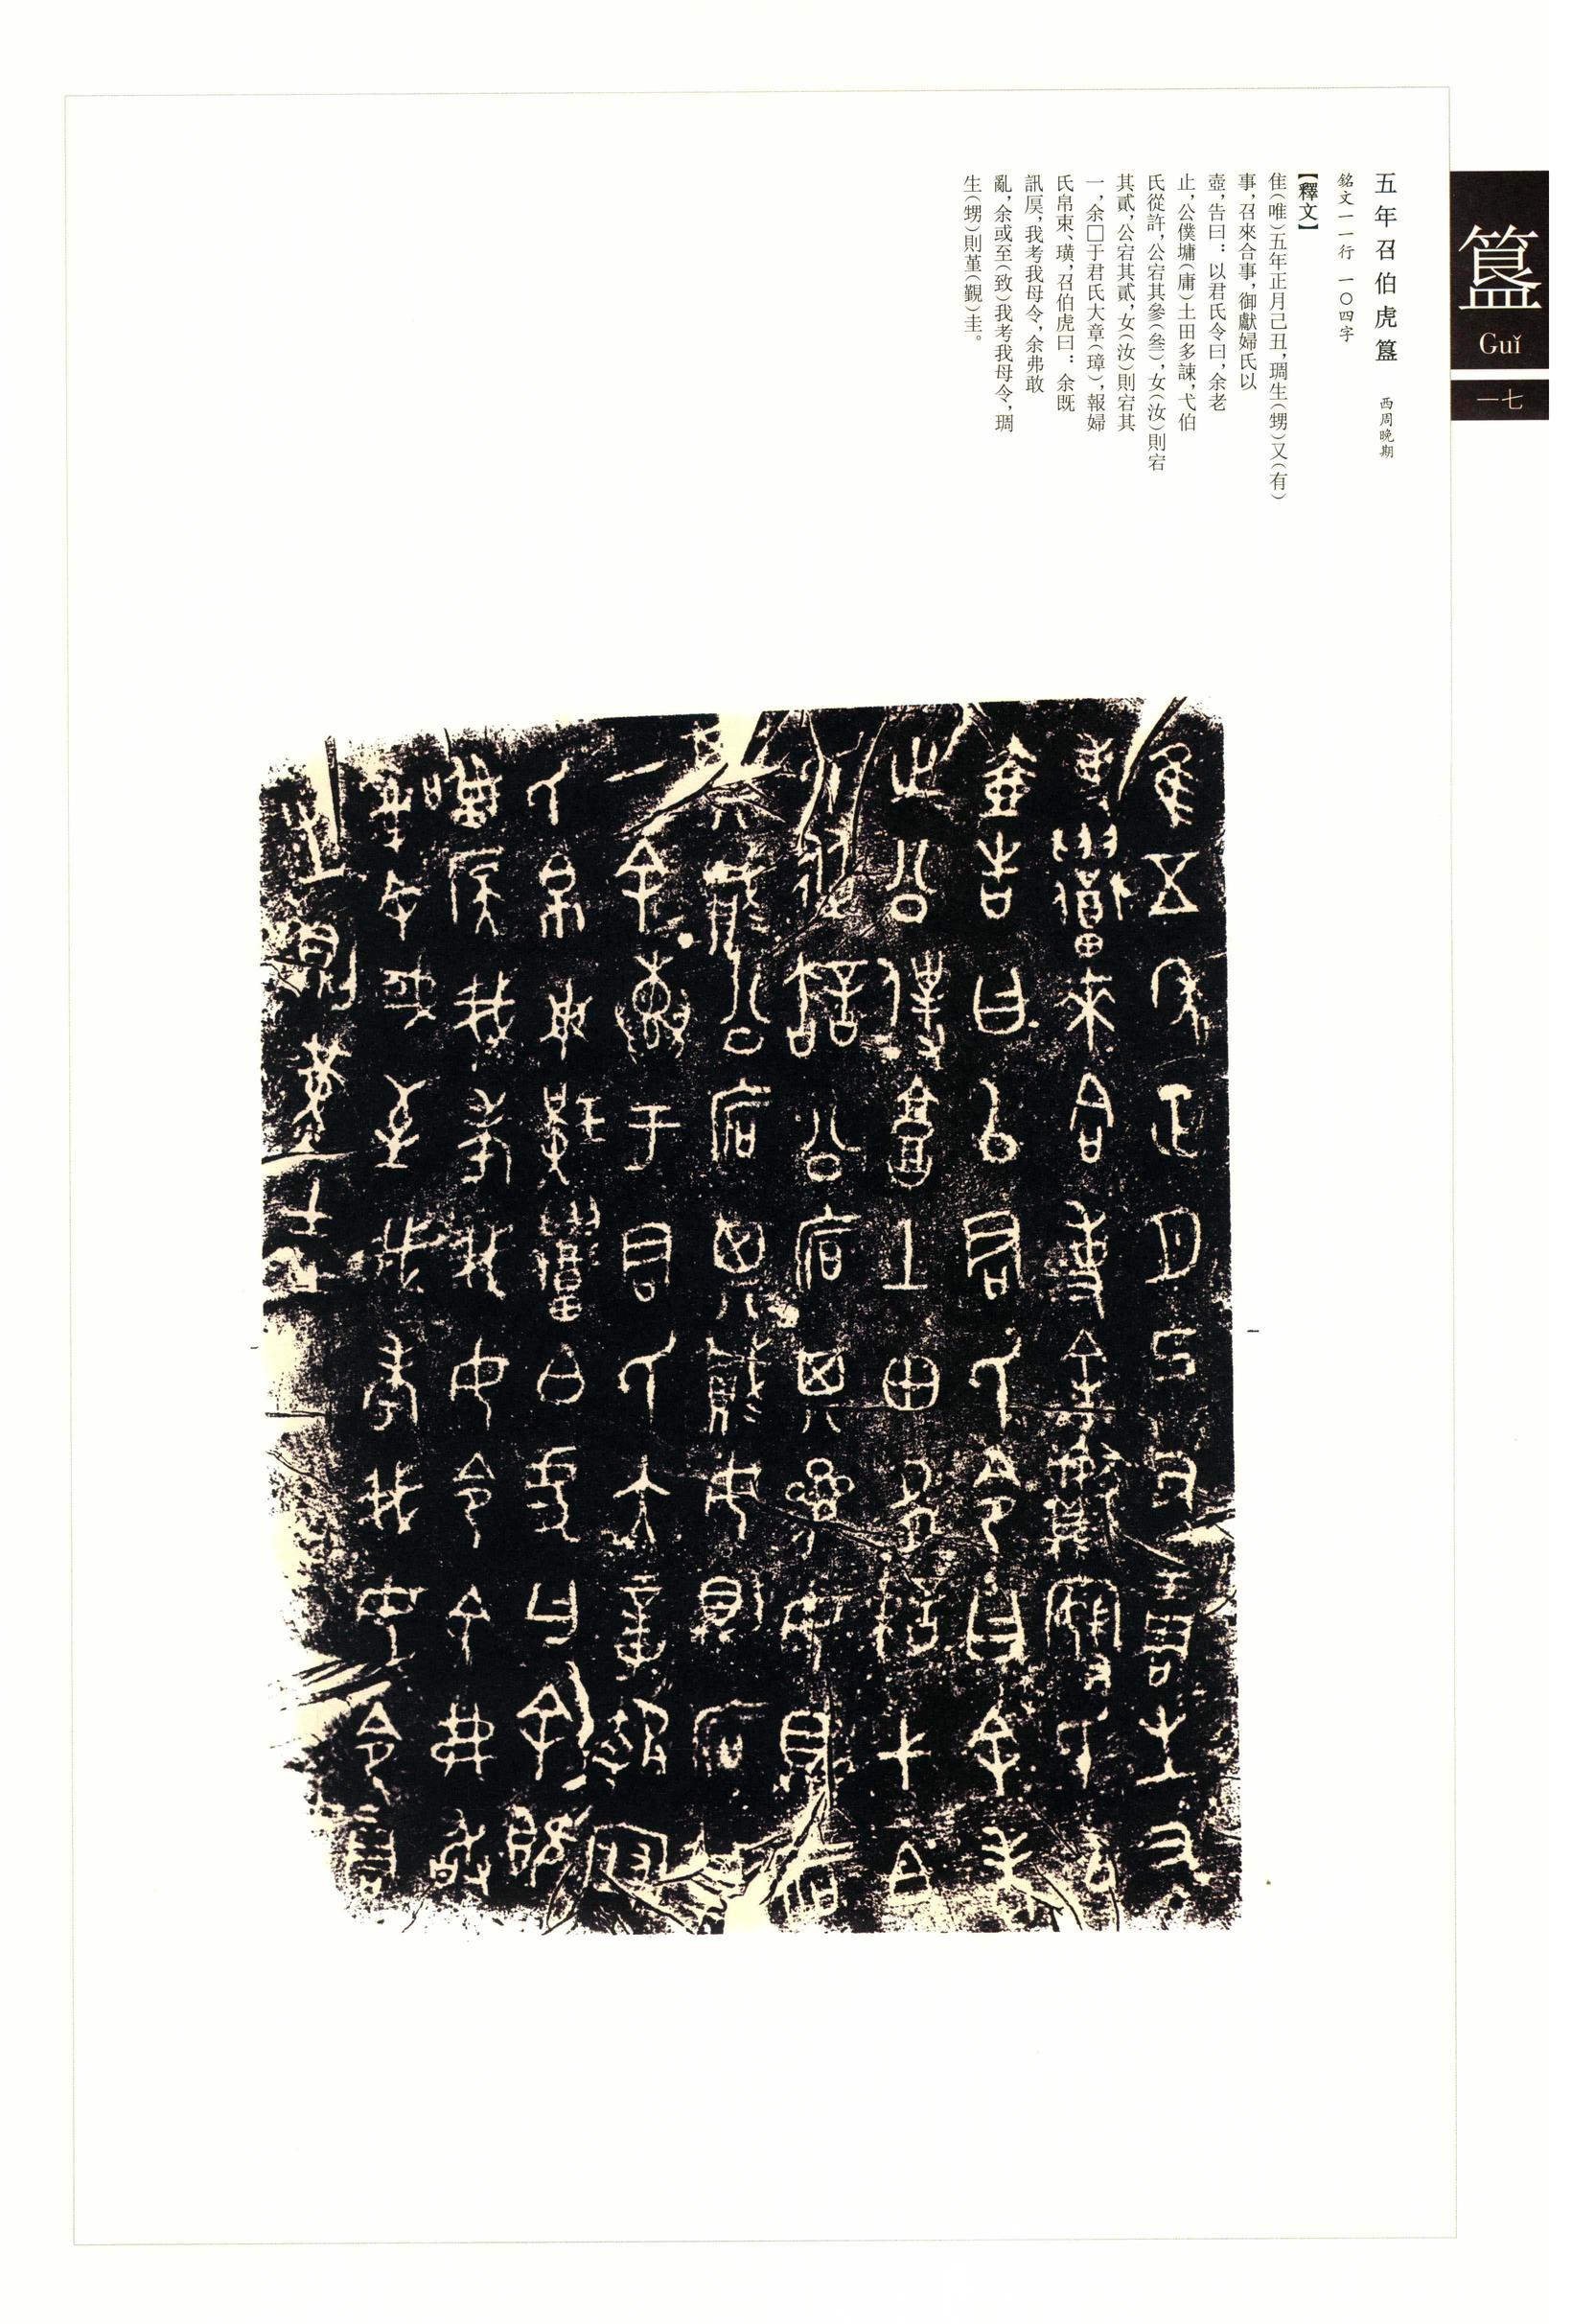 簋
Guǐ
一七
五年召伯虎簋 西周晚期
銘文一一行 一〇四字
【釋文】
隹(唯)五年正月己丑,琱生(甥)又(有)
事,召來合事,御獻婦氏以
壺,告曰:以君氏令曰,余老
止,公僕墉(庸)土田多諫,弋伯
氏從許,公宕其參(叁),女(汝)則宕
其貳,公宕其貳,女(汝)則宕其
一,余□于君氏大章(璋),報婦
氏帛束、璜,召伯虎曰:余既
訊㕯,我考我母令,余弗敢
亂,余或至(致)我考我母令,琱
生(甥)則堇(覲)圭。